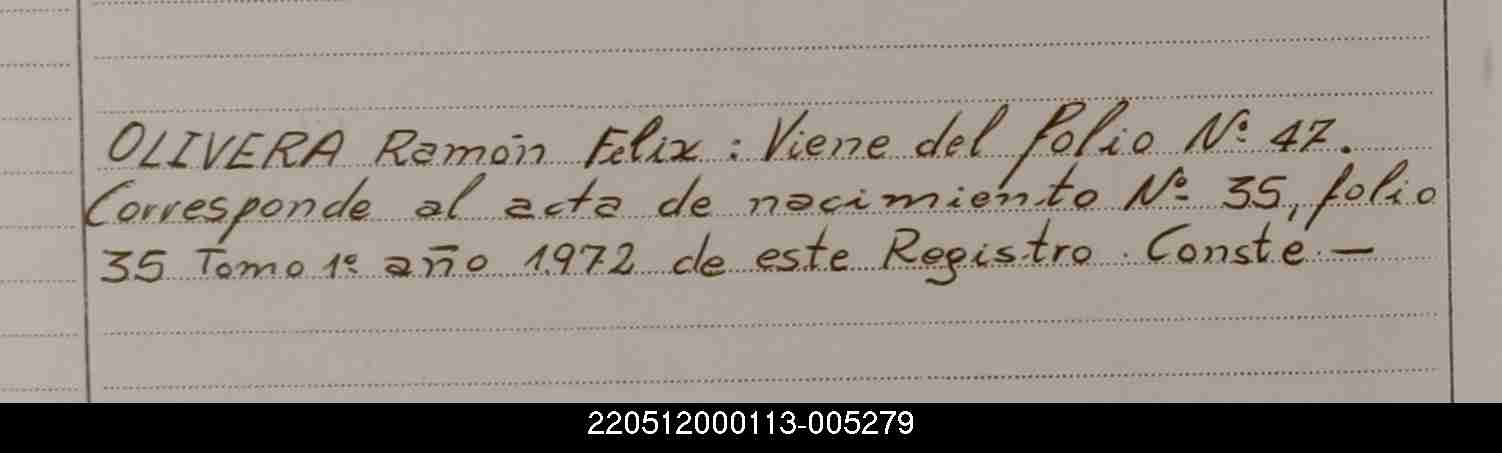 OLIVERA Ramón Felix : Viene del folio Nº 47.
Corresponde al acta de nacimiento Nº 35, folio
35 Tomo 1º año 1972 de este Registro. Conste.—
220512000113-005279